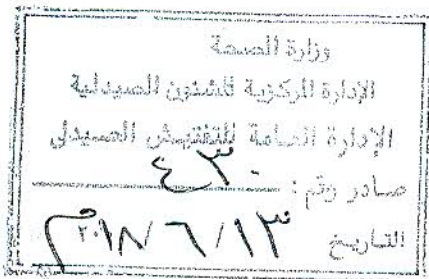 وزارة الصحة
الإدارة المركزية للشئون الصيدلية
الإدارة العامة للتفتيش الصيدلى
صادر رقم : ٤٣٠
التاريخ ٢٠١٨/٦/١٣